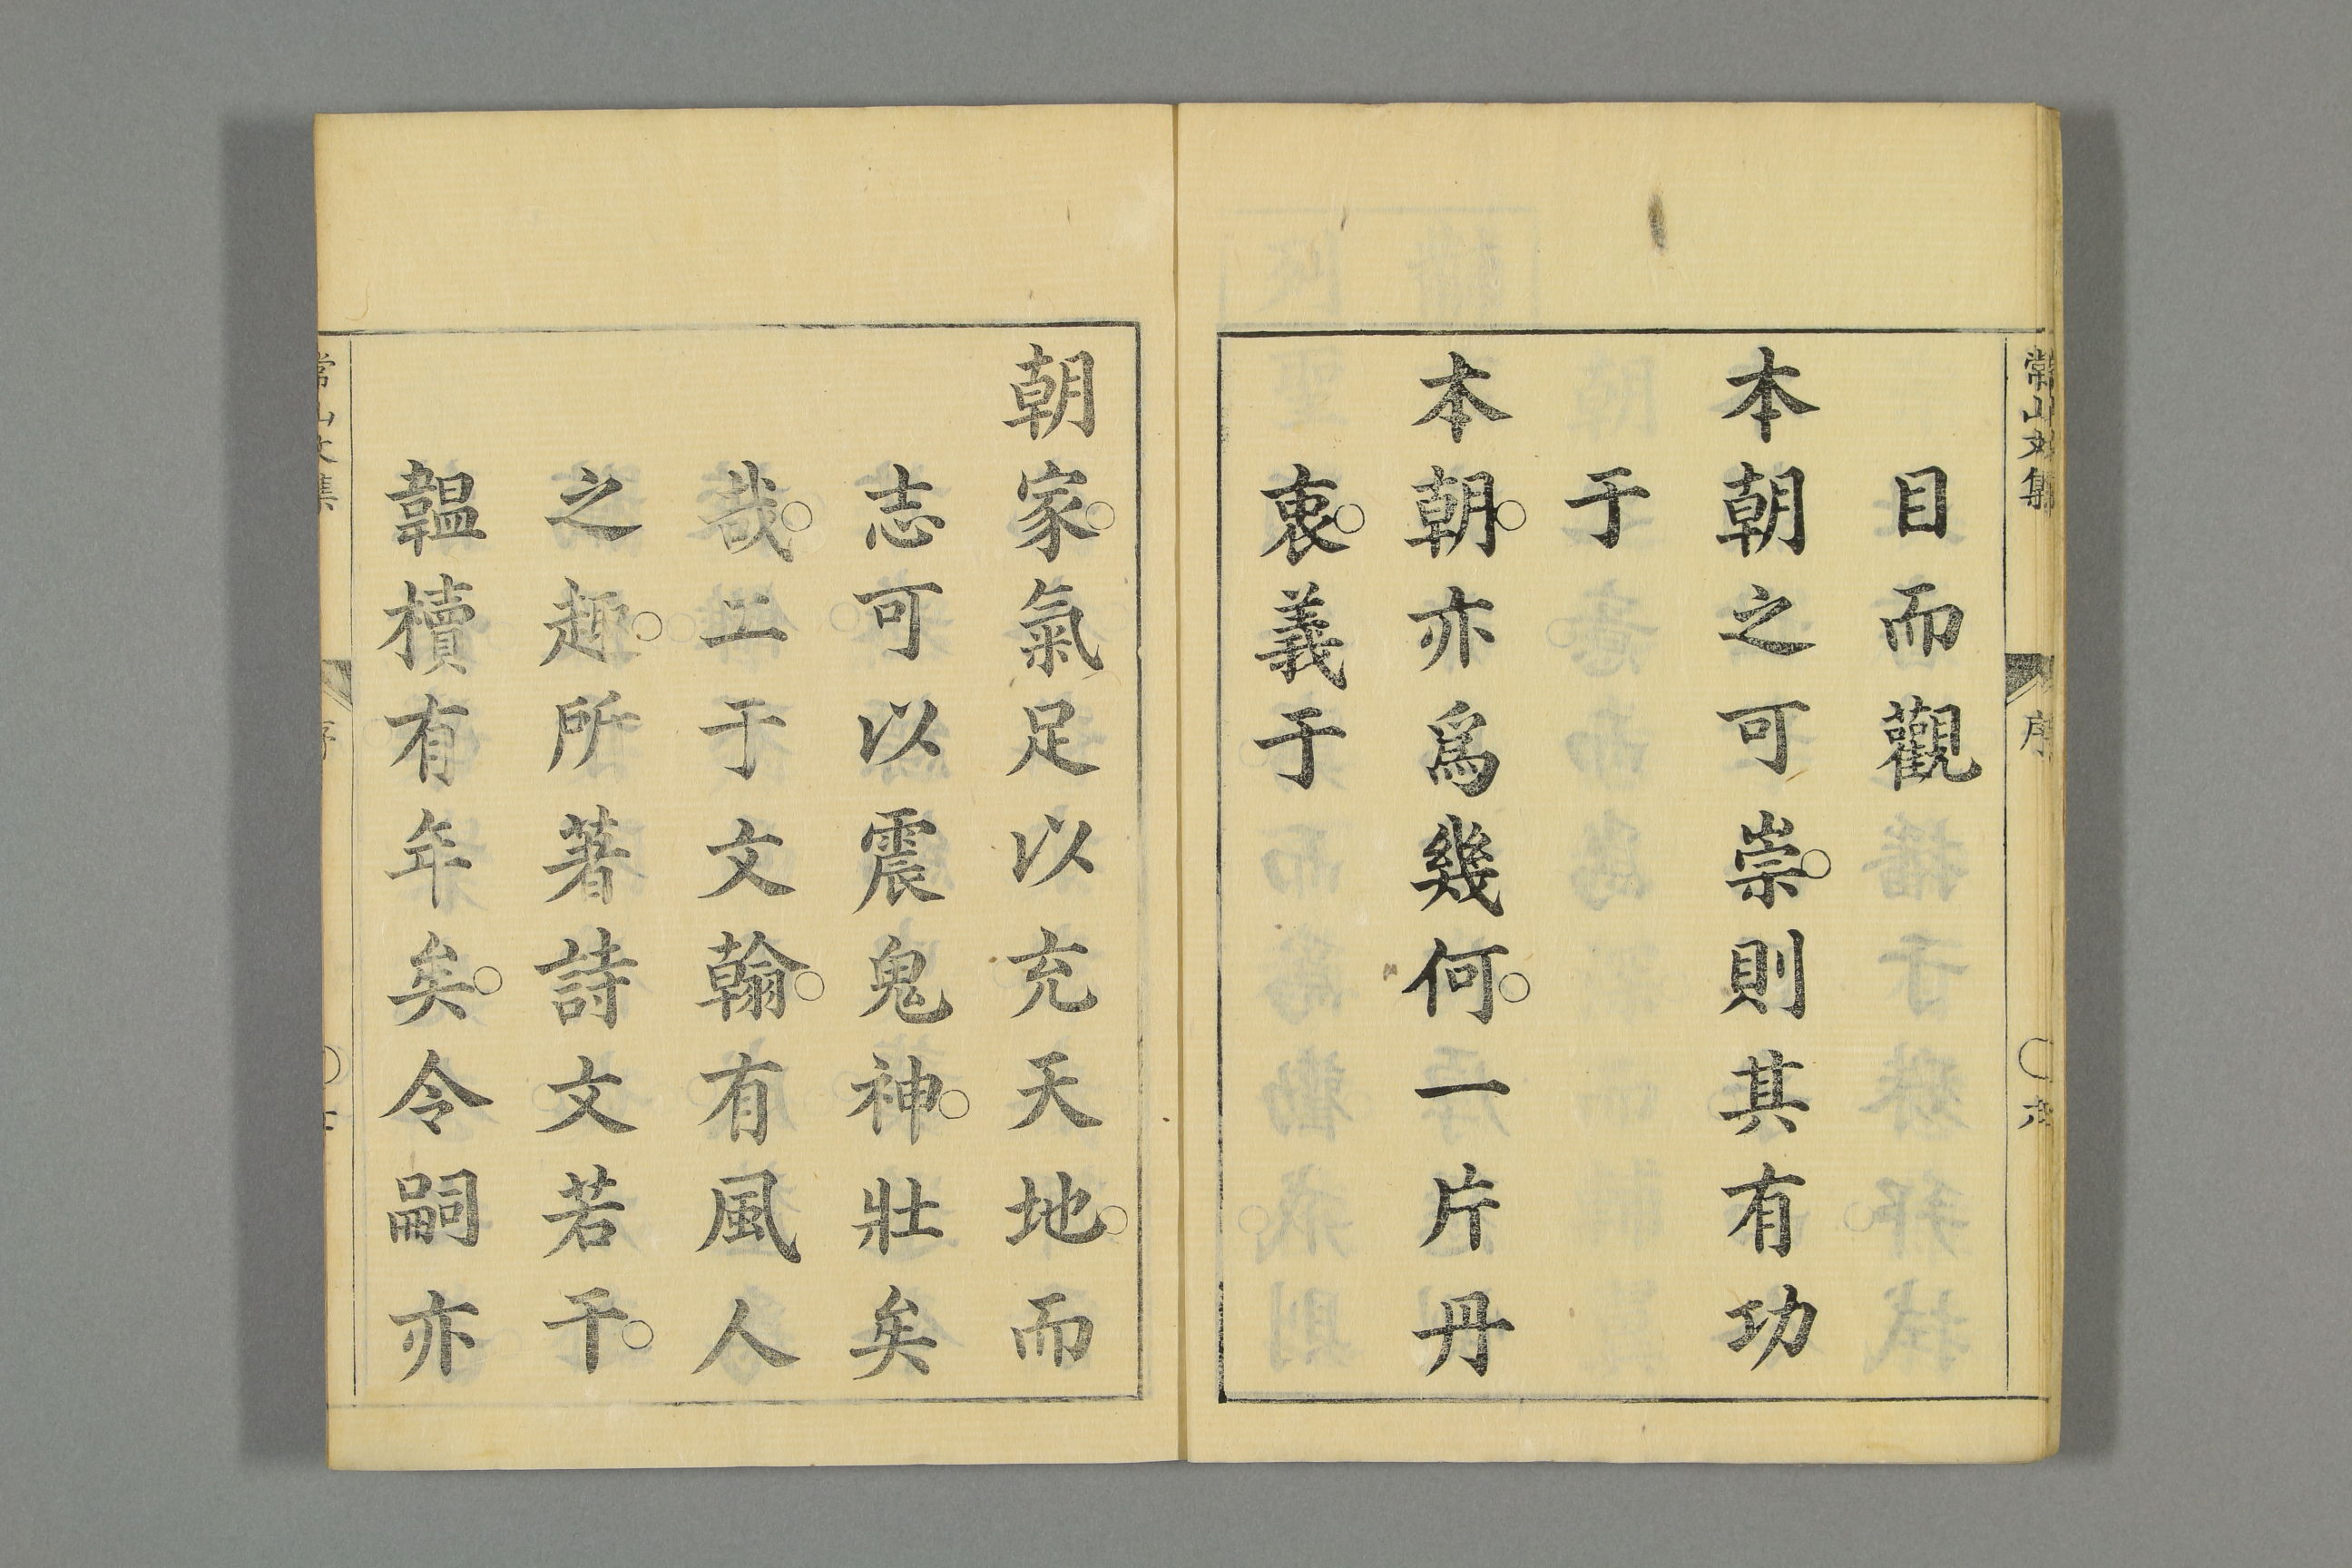 常山文集 序 ○六
目而觀
本朝之可崇○則其有功
于
本朝○亦爲幾何○一片丹
衷○義于
朝家○氣足以充天地○而
志可以震鬼神○壯矣
哉○工于文翰○有風人
之趣○所著詩文若干○
韞櫝有年矣○令嗣亦
常山文集 序